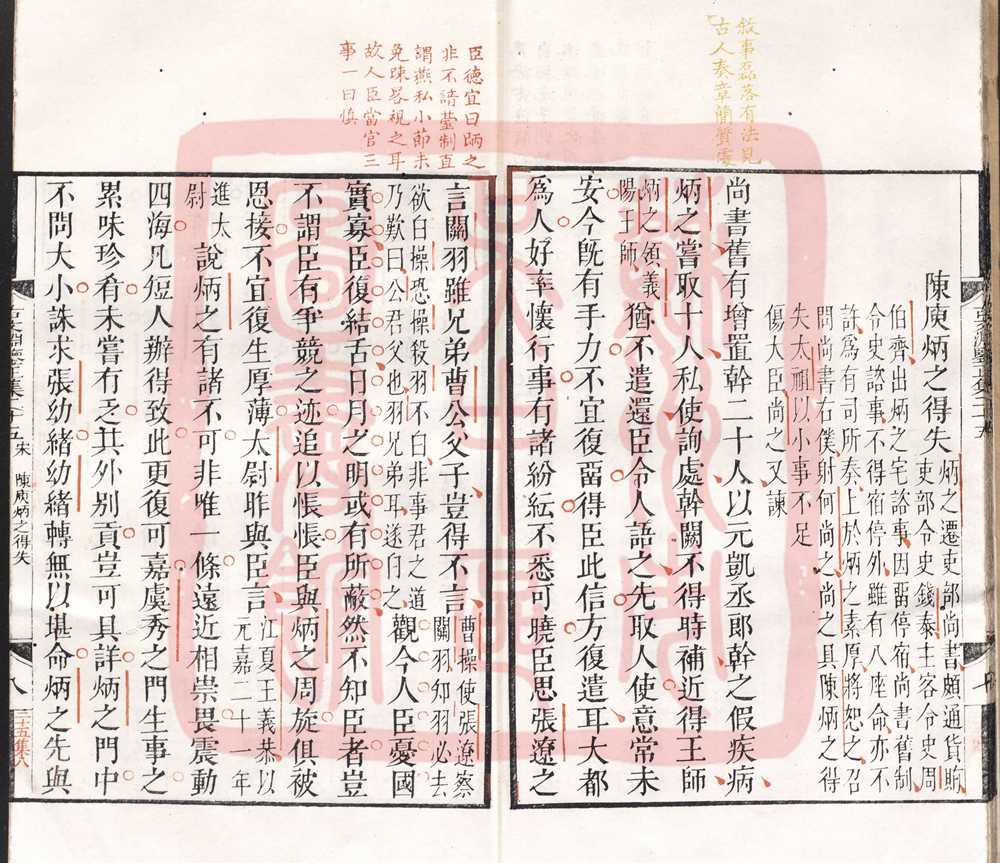 敘事磊落有法見
古人奏章簡質處
陳庾炳之得失
炳之遷吏部尚書頗通貨賄
吏部令史錢泰主客令史周
伯齊出炳之宅諮事因畱停宿尚書舊制
令史諮事不得宿停外雖有八座命亦不
許爲有司所奏上於炳之素厚將恕之召
問尚書右僕射何尚之尚之具陳炳之得
失太祖以小事不足
傷大臣尚之又諫
尚書舊有增置幹二十人以元凱丞郎幹之假疾病
炳之嘗取十人私使詢處幹闕不得時補近得王師
炳之領義
陽王師
猶不遣還臣令人語之先取人使意常未
安今旣有手力不宜復畱得臣此信方復遣耳大都
爲人好率懷行事有諸紛紜不悉可曉臣思張遼之
臣德宜曰炳之
非不諳臺制直
謂燕私小節未
免踈畧視之耳
故人臣當官三
事一曰愼
言關羽雖兄弟曹公父子豈得不言
曹操使張遼察
關羽知羽必去
欲白操恐操殺羽不白非事君之道
乃歎曰公君父也羽兄弟耳遂白之
觀今人臣憂國
實寡臣復結舌日月之明或有所蔽然不知臣者豈
不謂臣有爭競之迹追以悵悵臣與炳之周旋俱被
恩接不宜復生厚薄太尉昨與臣言
江夏王義恭以
元嘉二十一年
進太
尉
說炳之有諸不可非唯一條遠近相崇畏震動
四海凡短人辦得致此更復可嘉虞秀之門生事之
累味珍肴未嘗有乏其外別貢豈可具詳炳之門中
不問大小誅求張幼緒幼緒轉無以堪命炳之先與
宋
陳庾炳之得失
八
三五集八